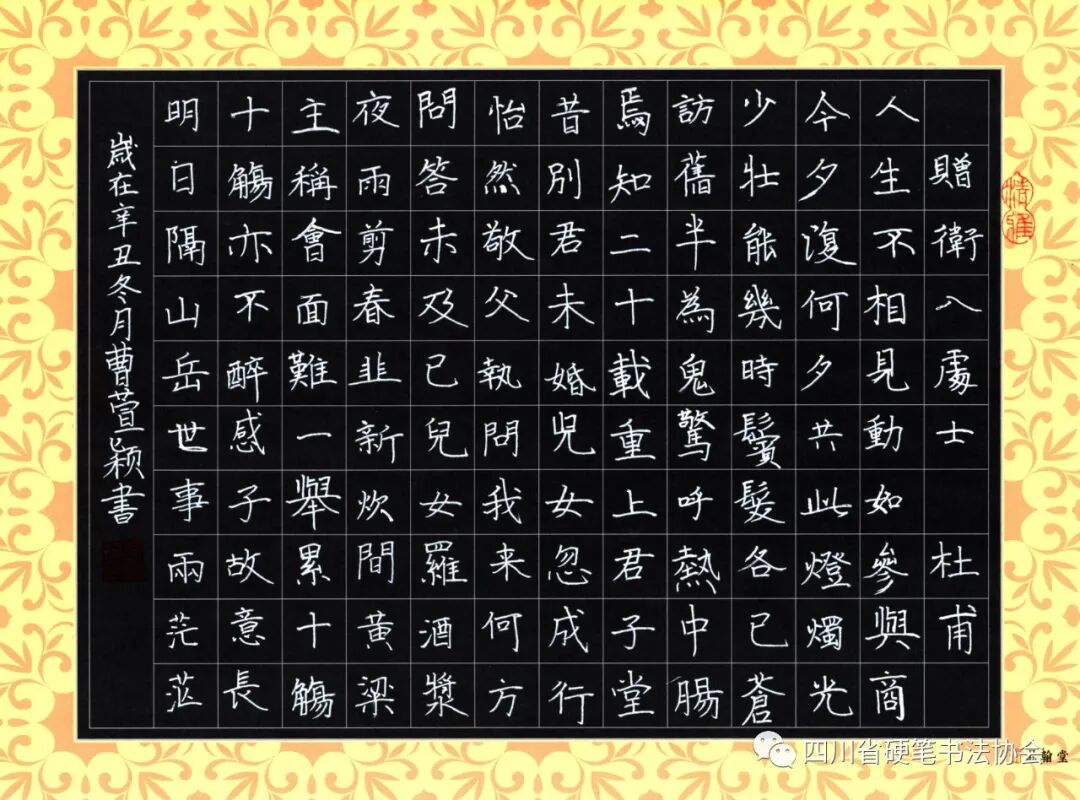 贈衛八處士 杜甫
人生不相見動如參與商
今夕復何夕共此燈燭光
少壯能幾時鬢髮各已蒼
訪舊半為鬼驚呼熱中腸
焉知二十載重上君子堂
昔別君未婚兒女忽成行
怡然敬父執問我来何方
問答未及已兒女羅酒漿
夜雨剪春韭新炊間黃梁
主稱會面難一舉累十觴
十觴亦不醉感子故意長
明日隔山岳世事兩茫茫
歲在辛丑冬月曹萱颖書
四川省硬笔书法协会
翰堂